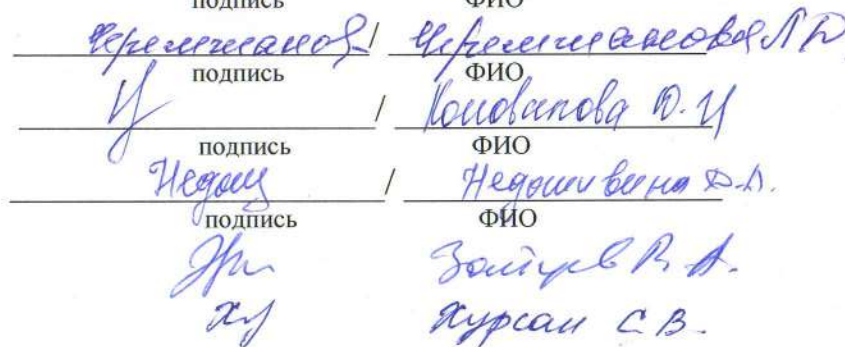 подпись ФИО
Черемчанов / Черемчанова Л Д
подпись ФИО
/ Коновалова Ю. Ц
подпись ФИО
Недош / Недошивина Д.Л.
подпись ФИО
Зайцев В. А.
Ху Хурсан С.В.